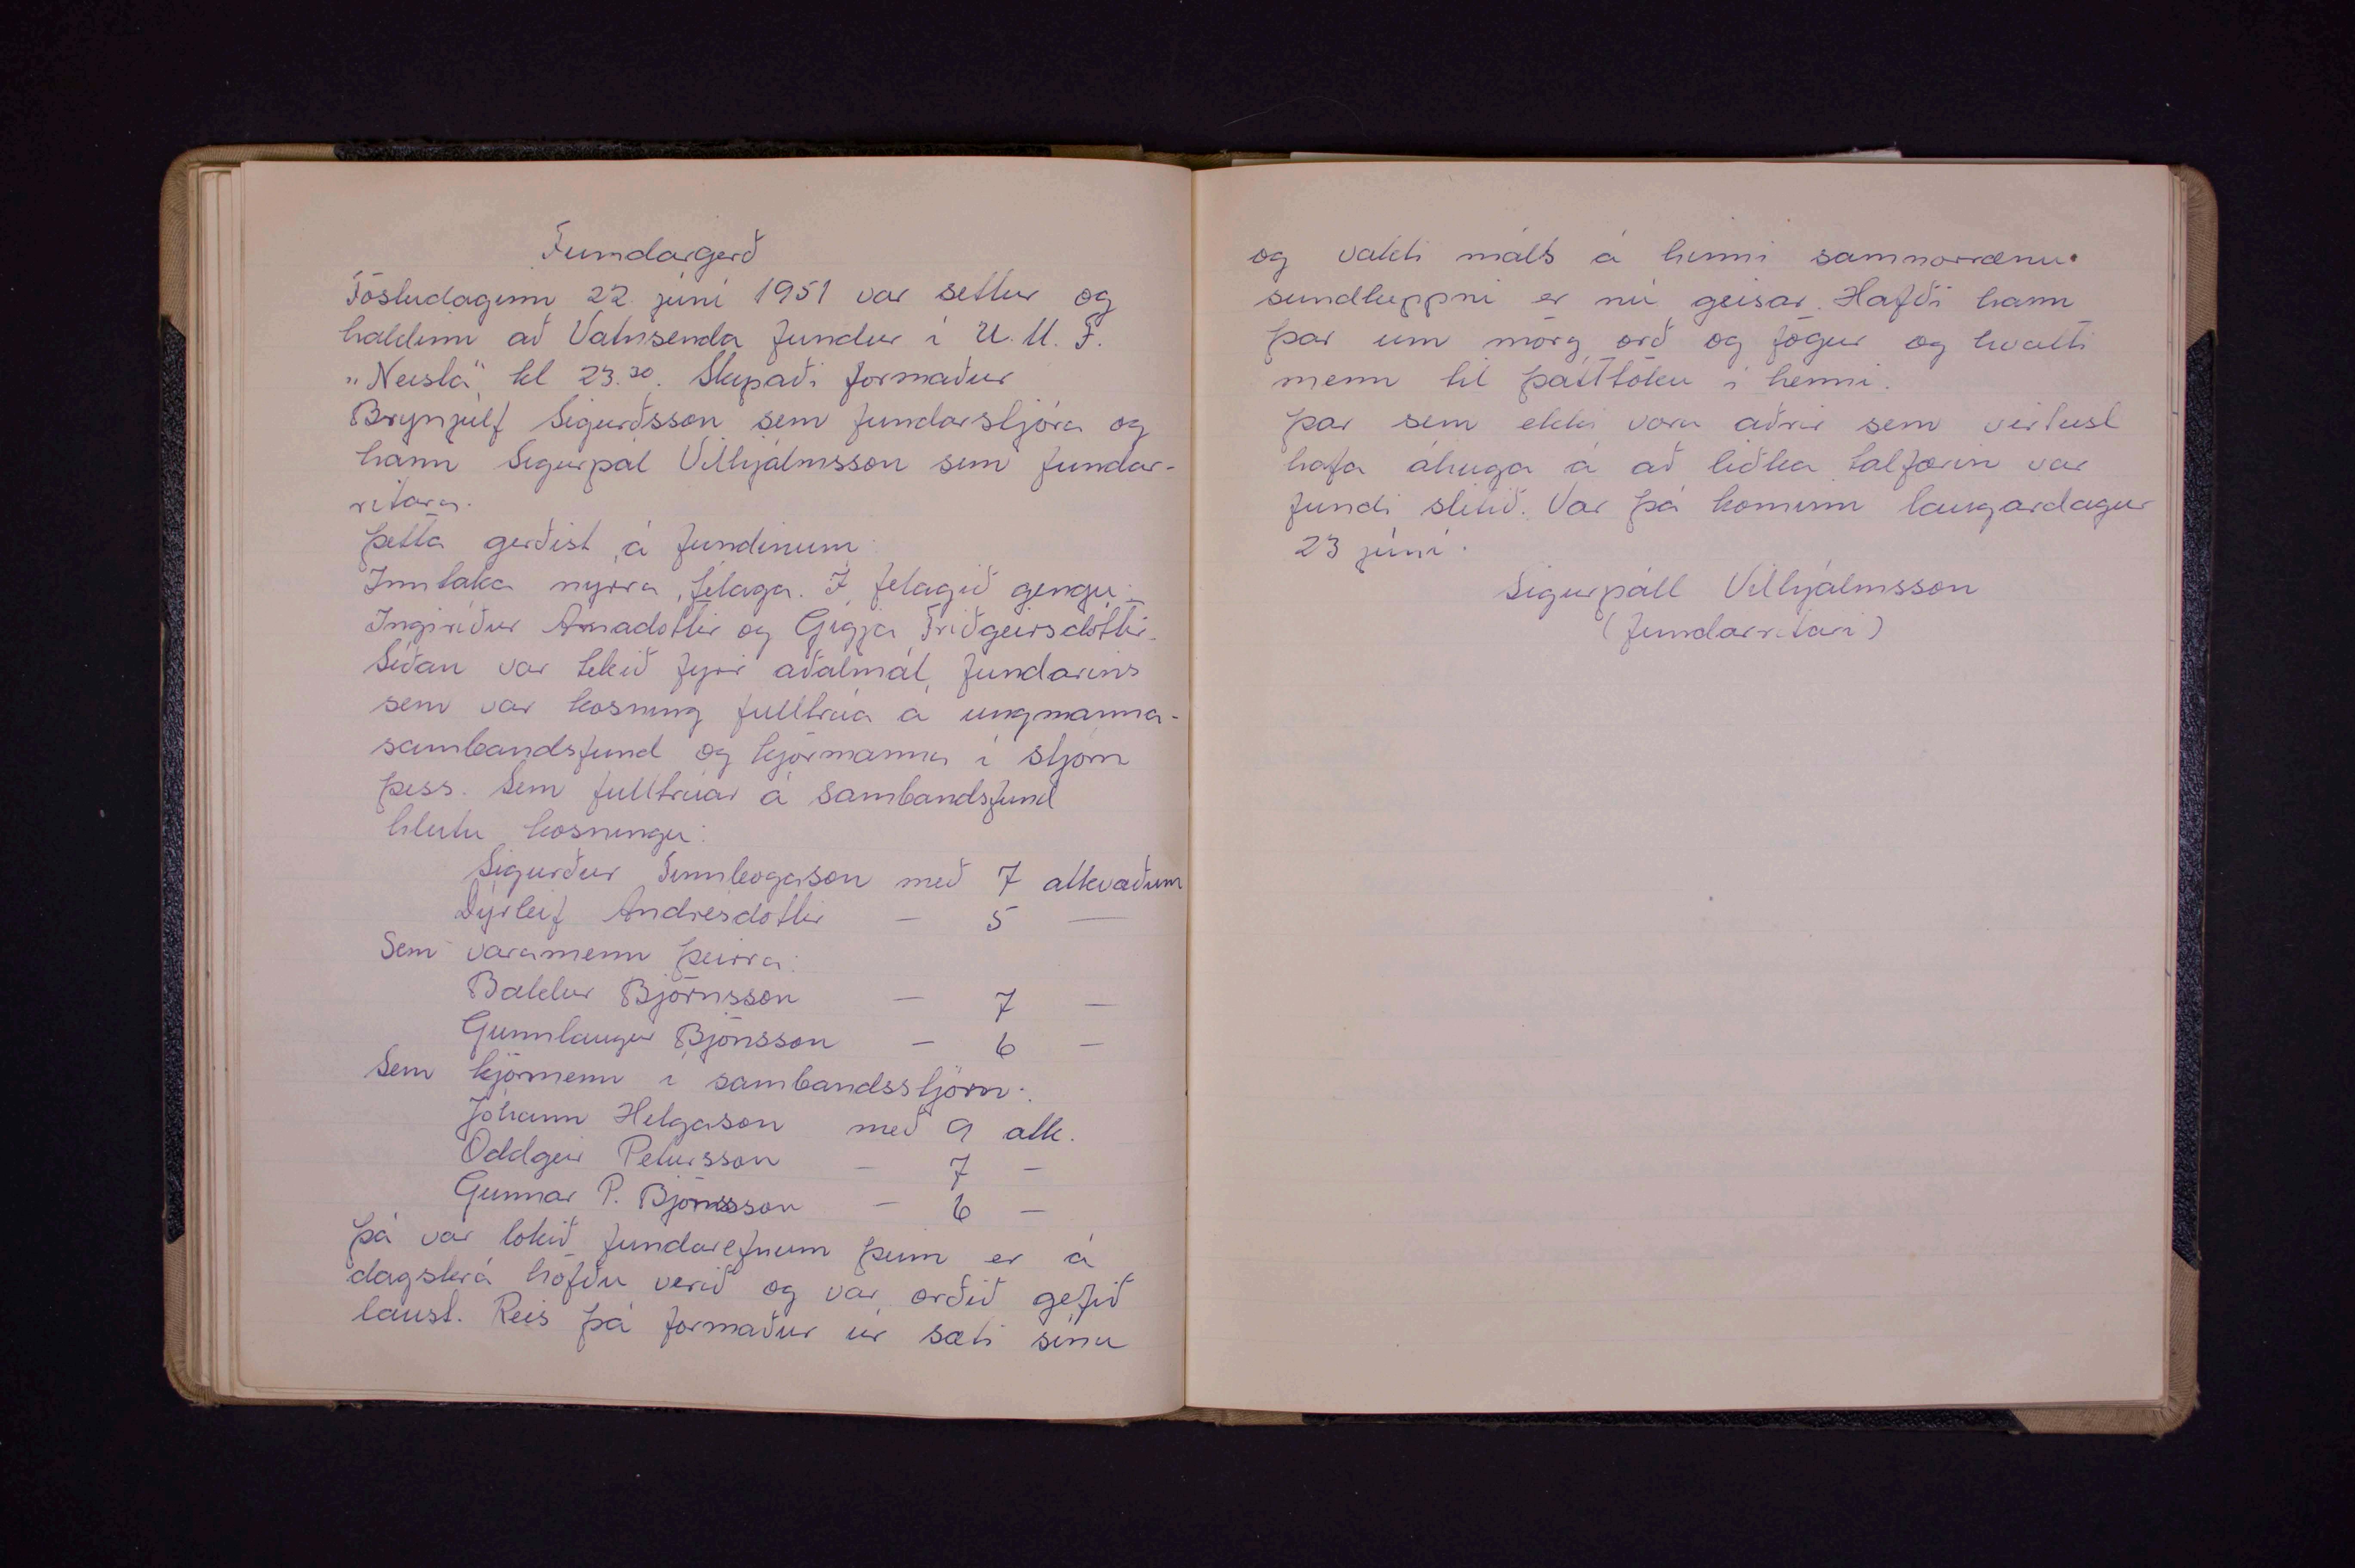 Fundargerð
Föstudaginn 22. júní 1951 var settur og
haldinn að Vatnsenda fundur í U.M.F.
„Neista" kl 23.30. Skipaði formaður
Brynjúlf Sigurðsson sem fundarstjóra og
hann Sigurpál Vilhjálmsson sem fundar-
ritara.
Þetta gerðist á fundinum:
Inntaka nýrra félaga. Í félagið gengu:
Ingiríður Árnadóttir og Gígja Friðgeirsdóttir.
Síðan var tekið fyrir aðalmál fundarins
sem var kosning fulltrúa á ungmanna-
sambandsfund og kjörmanna í stjórn
þess. Sem fulltrúar á sambandsfund
hlutu kosningu:
Sigurður Finnbogason með 7 atkvæðum
Dýrleif Andrésdóttir — 5 —
Sem varamenn þeirra:
Baldur Björnsson — 7 —
Gunnlaugur Björnsson — 6 —
Sem kjörmenn í sambandsstjórn:
Jóhann Helgason með 9 atk.
Oddgeir Pétursson — 7 —
Gunnar P. Björnsson — 6 —
Þá var lokið fundarefnum þeim er á
dagskrá höfðu verið og var orðið gefið
laust. Reis þá formaður úr sæti sínu
og vakti máls á hinni samnorrænu
sundkeppni er nú geisar. Hafði hann
þar um mörg orð og fögur og hvatti
menn til þátttöku í henni.
Þar sem ekki voru aðrir sem virtust
hafa áhuga á að liðka talfærin var
fundi slitið. Var þá kominn laugardagur
23 júní.
Sigurpáll Vilhjálmsson
(fundarritari)